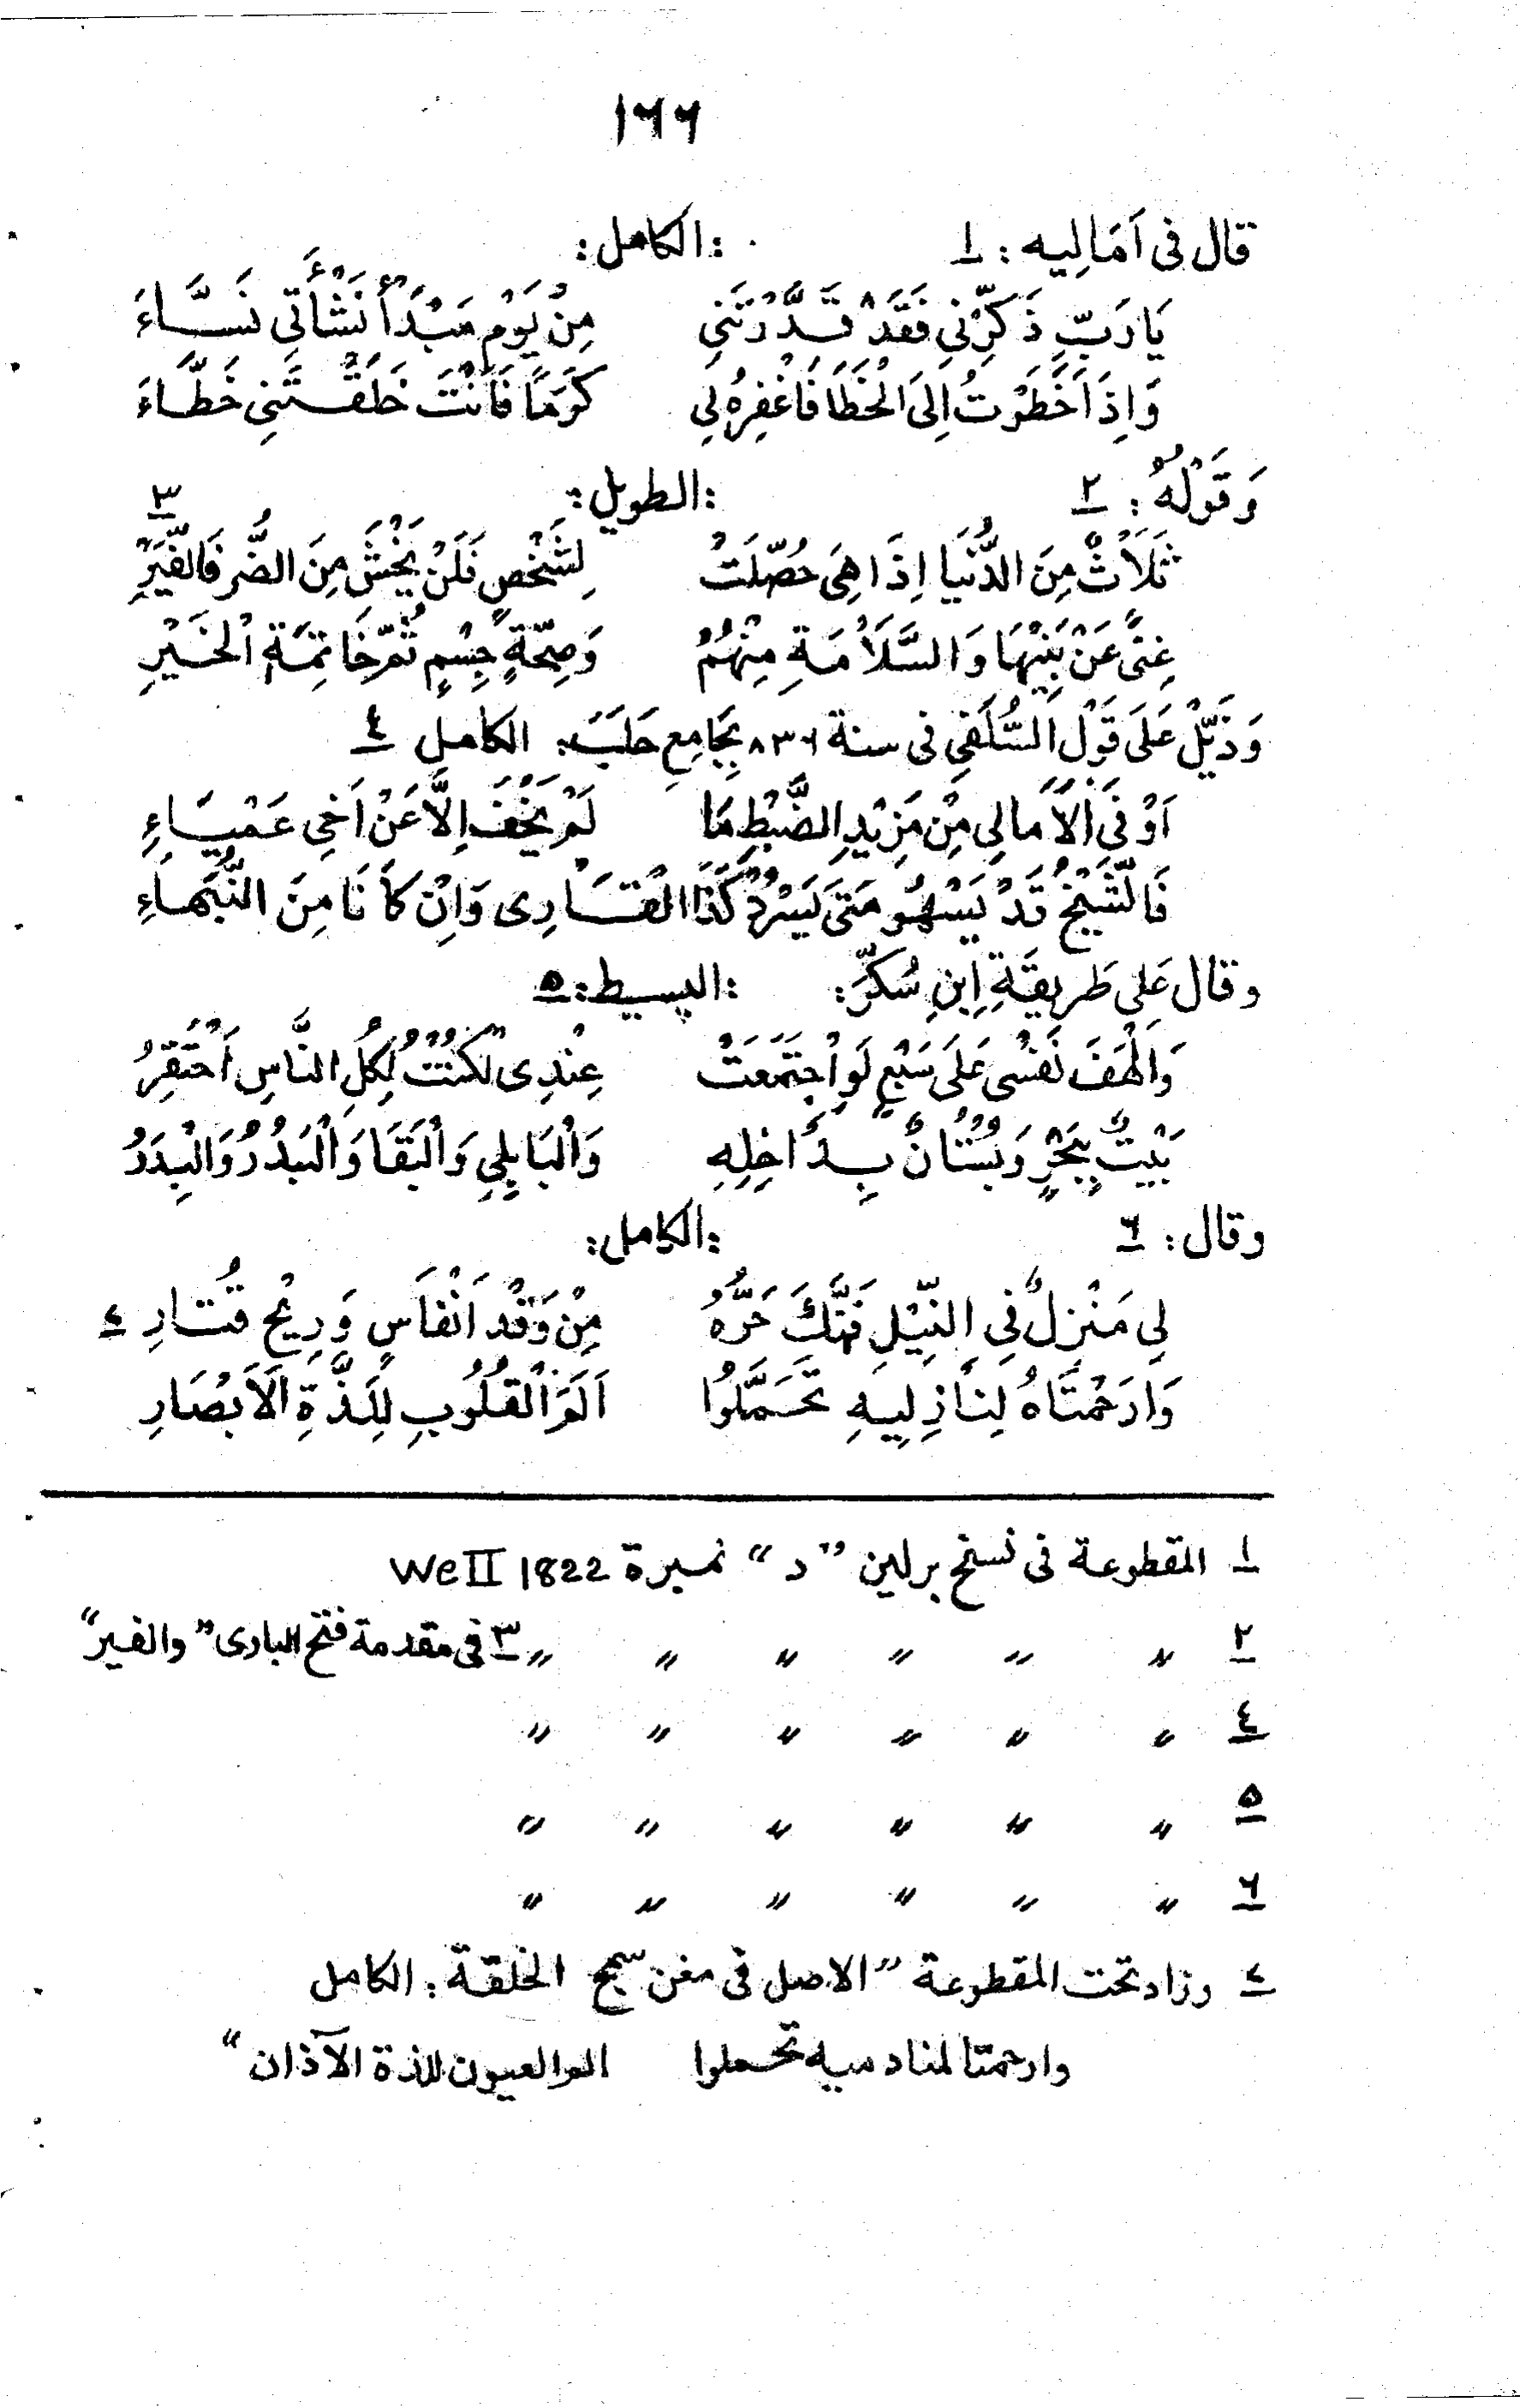 ١٦٦
قال فى اَمَالِيه : ١ :الكامل:
يَا رَبِّ ذَكِّرْنِي فَقَدْ قَدَّرْتَنِي مِنْ يَوْمِ مَبْدَأ نَشْأَتِي نَسَّاءَ
وَاِذَا خَطَرْتُ اِلَى الْخَطَا فَاغْفِرْهُ لِي كَرَمًا فَاَنْتَ خَلَقْتَنِي خَطَّاءَ
وَقَوْلُهُ : ٢ :الطويل:
ثَلَاثٌ مِنَ الدُّنْيَا اِذَا هِيَ حُصِّلَتْ لِشَخْصٍ فَلَنْ يَخْشَ مِنَ الضُّرِ فَالضَّيْرِ ٣
غِنًى عَنْ بَنِيْهَا وَالسَّلَامَةِ مِنْهُمْ وَصِحَّةٍ جِسْمٍ ثُمَّ خَاتِمَة الْخَيْرِ
وَذَيَّلْ عَلَى قَوْل السُّلَفِي فى سنة ٨٣٦ بِجَامِعِ حَلَبَ: الكامل ٤
اَوْ فَى الْاَمَالِي مِنْ مَزِيْدِ الضَّبْطِ مَا لَمْ يَخْفَ اِلَّا عَنْ اَخِي عَمْيَاءِ
فَالشَّيْخُ قَدْ يَسْهُو مَتَى يَسْرُدْ كَذَا الْقَارِى وَاِنْ كَانَا مِنَ النُّبَهَاءِ
وقال عَلى طَرِيقَةِ اِبنِ سُكَّرِ: :البسيط: ٥
وَالْهَفَ نَفْسْى عَلَى سَبْعٍ لَوِاجْتَمَعَتْ عِنْدِى لَكُنْتُ لِكُلِ النَّاسِ اَحْتَقِرُ
بَيْتٌ بِبَحْرٍ وَبُسْتَانٌ بِدَاخِلِهِ وَالْبَابِلِي وَالْبَقَا وَالْبَدْرُ وَالْبِدَرُ
وقال : ٦ :الكامل:
لِي مَنْزِلٌ فِي النِّيْلِ فَتَّكَ حَرُّهُ مِنْ وَقْدِ اَنْفَاسٍ وَرِيْحِ قُتَارِ ٧
وَارَحْمَتَاهُ لِنَازِلِيهِ تَحَمَّلُوا اَلَمَ الْقُلُوبِ لِلَذَّةِ الْاَبْصَارِ
١ المقطوعة فى نسخ برلين "د" نمبرة WeII 1822
٢ " " " " " " ٣ فى مقدمة فتح البارى "والضير"
٤ " " " " " "
٥ " " " " " "
٦ " " " " " "
٧ وزاد تحت المقطوعة "الاصل فى مغن سمج الخلقة: الكامل
وارحمتا لمنادميه تحملوا الم العيون للذة الآذان"